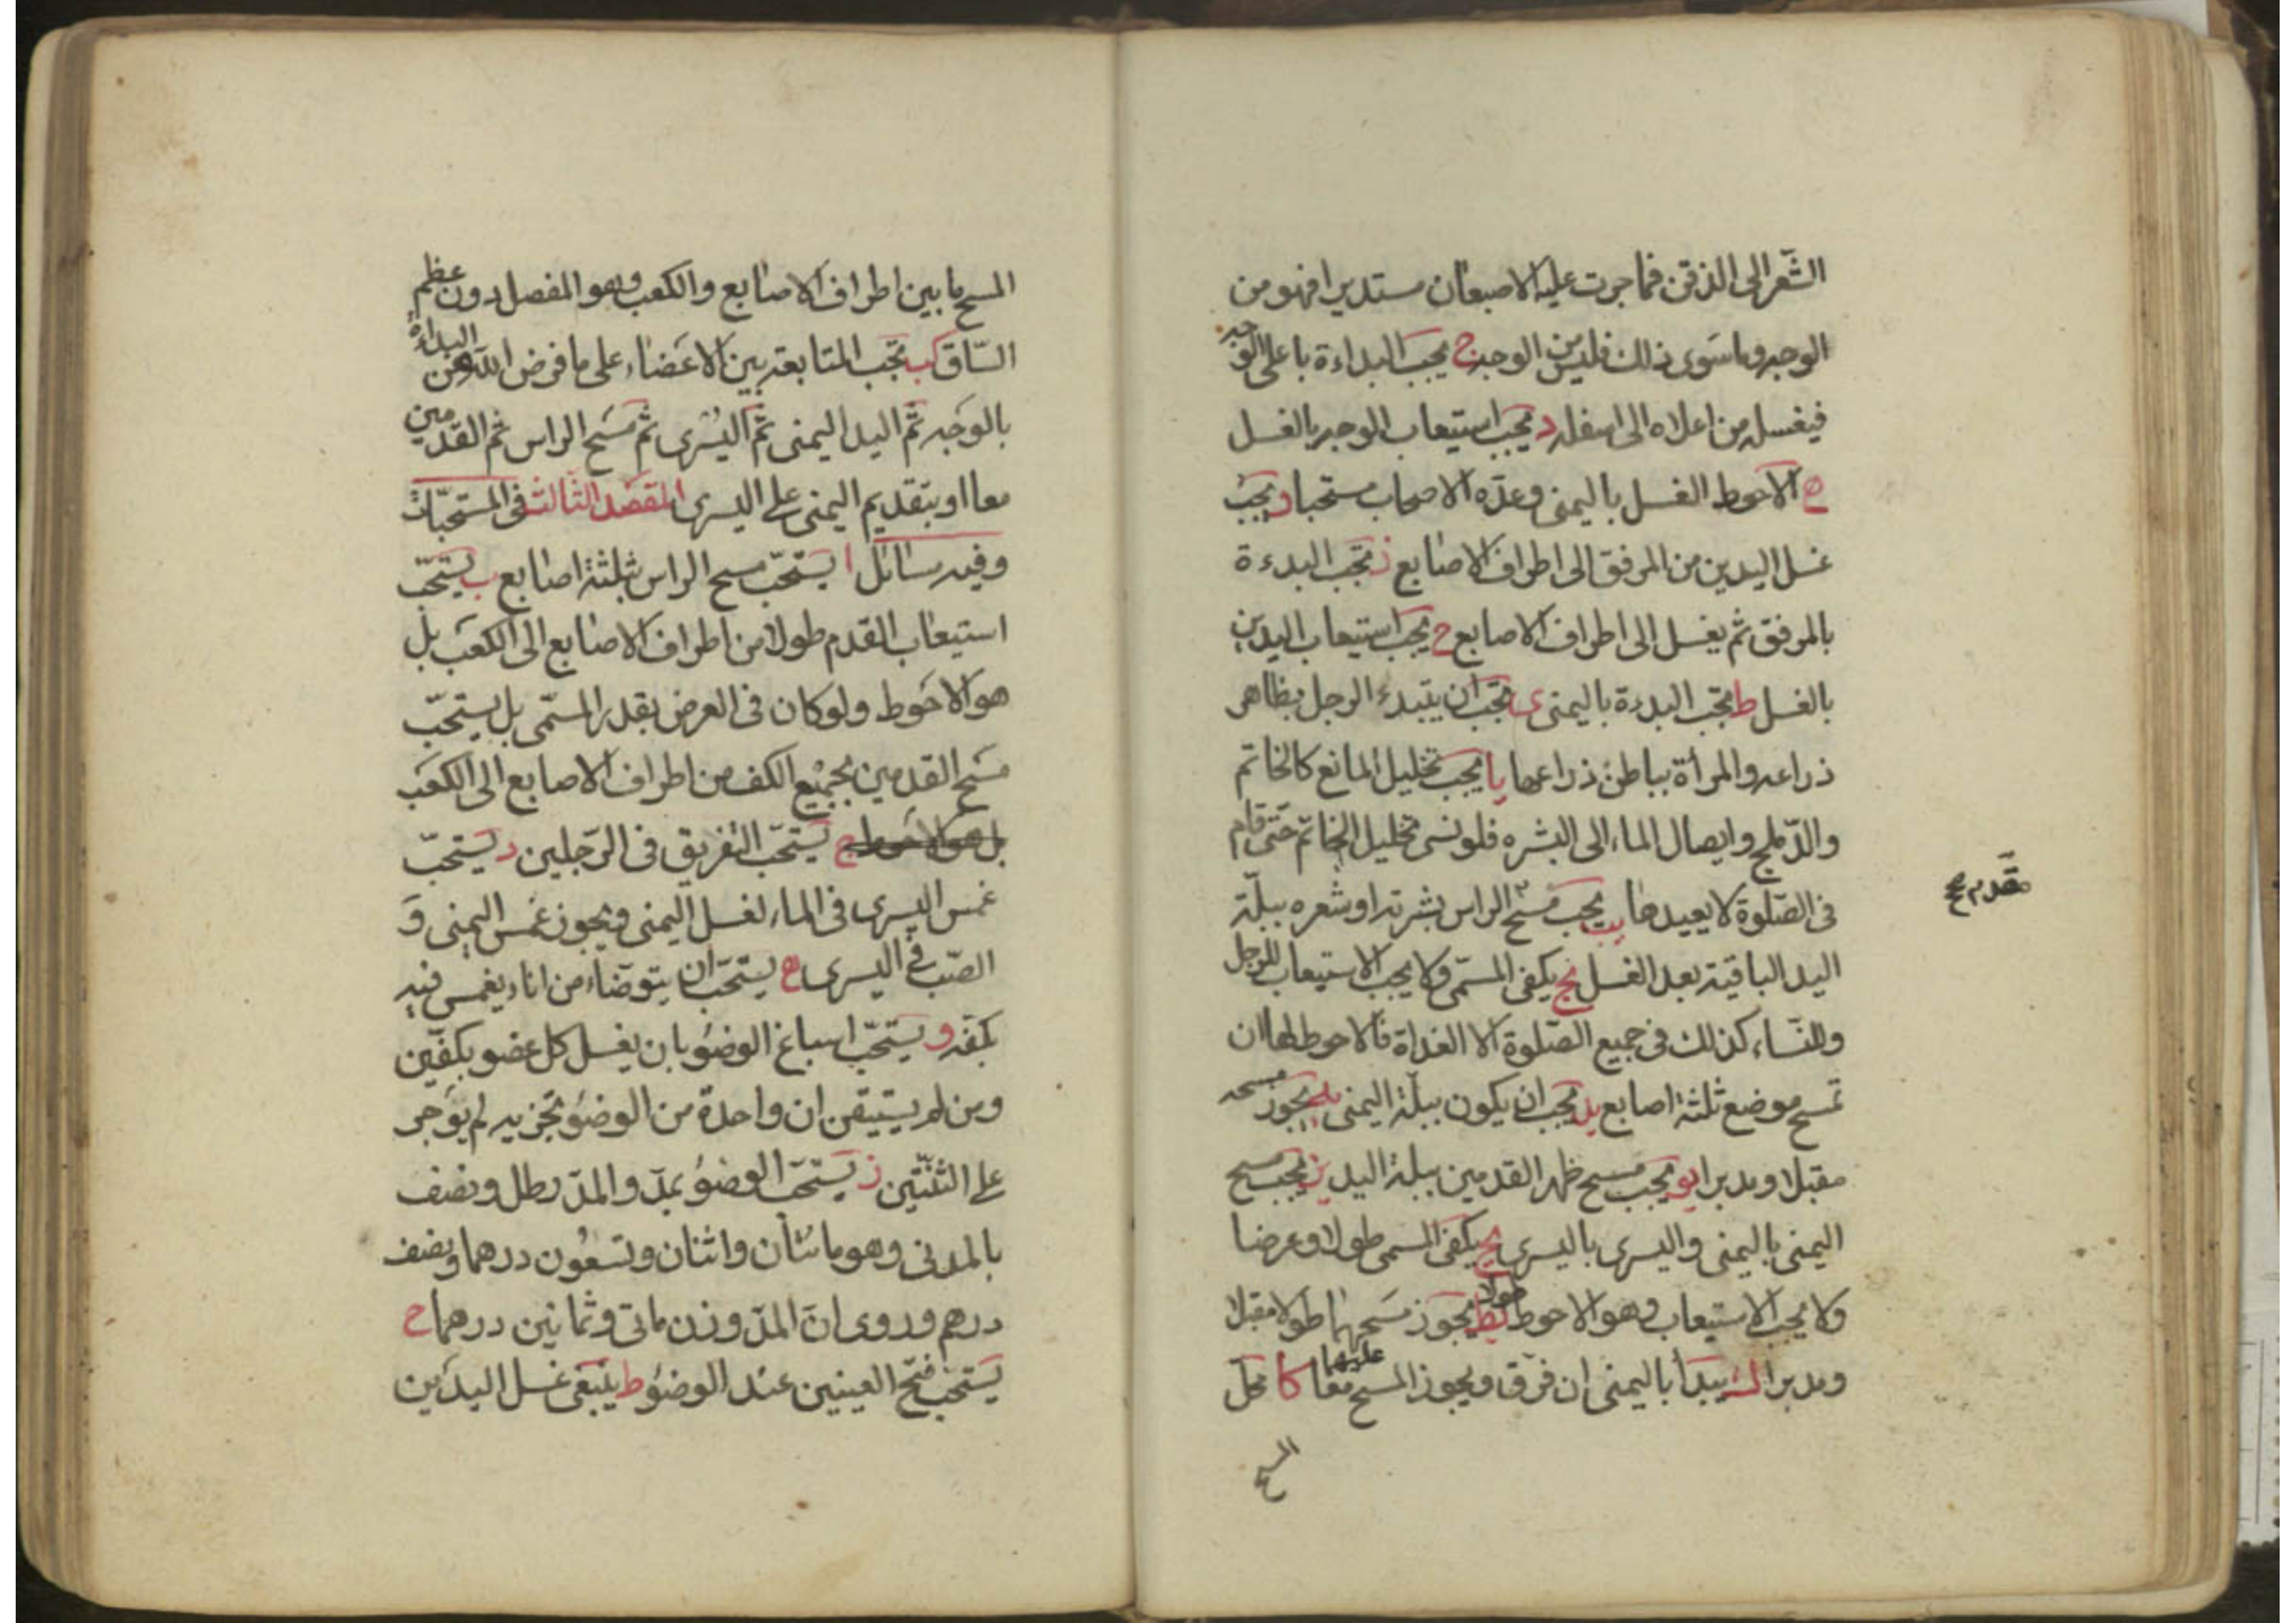 الشّعر الى الذقن فما جرت عليه الاصبعان مستديرا فهو من
الوجه وما سوى ذلك فليس من الوجه ج يجب البداءة باعلى الوجه
فيغسله من اعلاه الى اسفله د يجب استيعاب الوجه بالغسل
ه الاحوط الغسل باليمنى وعدّه الاصحاب مستحبا و يجب
غسل اليدين من المرفق الى اطراف الاصابع ز تجب البدءة
بالمرفق ثم يغسل الى اطراف الاصابع ح يجب استيعاب اليدين
بالغسل ط تجب البدءة باليمنى ى يجب ان يبتدء الرجل بظاهر
ذراعه والمرأة بباطن ذراعها يا يجب تخليل المانع كالخاتم
والدّملج وايصال الماء الى البشره فلو نسى تخليل الخاتم حتى قام
فى الصّلوة لا يعيدها يب يجب مسح الراس بشرته او شعره ببلّة
مقدم صح
اليد الباقية بعد الغسل يج يكفى المسمّى ولا يجب الاستيعاب للرجل
وللنّساء كذلك فى جميع الصّلوة الا الغداة فالاحوط لها ان
تمسح موضع ثلثة اصابع يد يجب ان يكون ببلّة اليمنى يه يجوز مسحه
مقبلا ومدبرا يو يجب مسح ظهر القدمين ببلة اليد يز يجب مسح
اليمنى باليمنى واليسرى باليسرى يح يكفى المسمى طولا وعرضا
ولا يجب الاستيعاب وهو الاحوط طولا يط يجوز مسحهما طولا مقبلا
ومدبرا ك يبدأ باليمنى ان فرّق ويجوز المسح عليهما معا كا محلّ
المسح
المسح ما بين اطراف الاصابع والكعب وهو المفصل دون عظم
السّاق كب تجب المتابعة بين الاعضاء على ما فرض الله من البداءة
بالوجه ثم اليد اليمنى ثم اليسرى ثم مسح الراس ثم القدمين
معا او بتقديم اليمنى على اليسرى المقصد الثالث فى المستحبّات
وفيه مسائل ا يستحبّ مسح الراس بثلثة اصابع ب يستحبّ
استيعاب القدم طولا من اطراف الاصابع الى الكعب بل
هو الاحوط ولو كان فى العرض بقدر المسمّى بل يستحبّ
مسح القدمين بجميع الكف من اطراف الاصابع الى الكعب
بل هو الاحوط ج يستحبّ التفريق فى الرّجلين د يستحبّ
غمس اليسرى فى الماء لغسل اليمنى ويجوز غمس اليمنى و
الصّب فى اليسرى ه يستحبّ ان يتوضاء من اناء يغمس فيه
بكفّه و يستحبّ اسباغ الوضوء بان يغسل كل عضو بكفّين
ومن لم يستيقن ان واحدة من الوضوء تجزيه لم يوجر
على الثنتين ز يستحبّ الوضوء بمدّ والمدّ رطل ونصف
بالمدنى وهو مائتان واثنان وتسعون درهما ونصف
درهم وروى انّ المدّ وزن مأتى وثمانين درهما ح
يستحب فتح العينين عند الوضوء ط ينبغى غسل اليدين